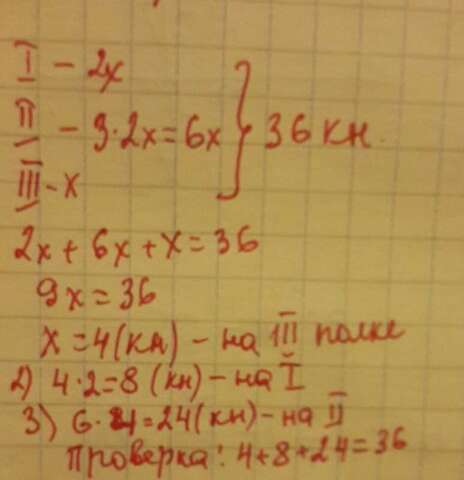 I - 2x
II - 3·2x=6x } 36 кн.
III - x
2x + 6x + x = 36
9x = 36
x = 4 (кн) - на III полке
2) 4·2=8 (кн) - на I
3) 6·4=24 (кн) - на II
Проверка: 4+8+24=36